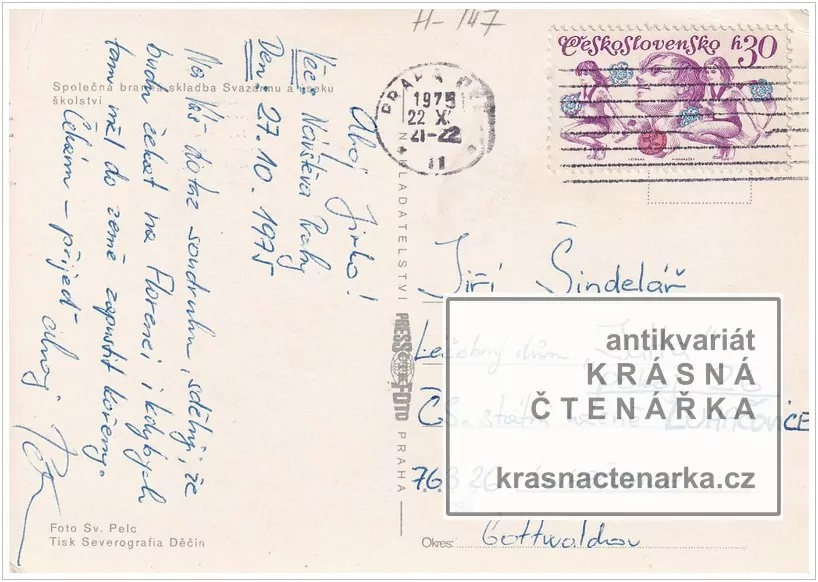 H-147
Československo h 30
PRAHA
1975
22 X
21-22
11
Společná branná skladba Svazarmu a úseku
školství
Ahoj Jirko!
Věc: Návštěva Prahy
Den: 27. 10. 1975
Na Váš dotaz soudruhu, sděluji, že
budu čekat na Florenci, i kdybych
tam měl do země zapustit kořeny.
Čekám – přijeď
NAKLADATELSTVÍ PRESSFOTO PRAHA
Jiří Šindelář
Léčebný dům
Čs. státní lázně LUHAČOVICE
antikvariát
KRÁSNÁ
ČTENÁŘKA
krasnactenarka.cz
Okres: Gottwaldov
Foto Sv. Pelc
Tisk Severografia Děčín